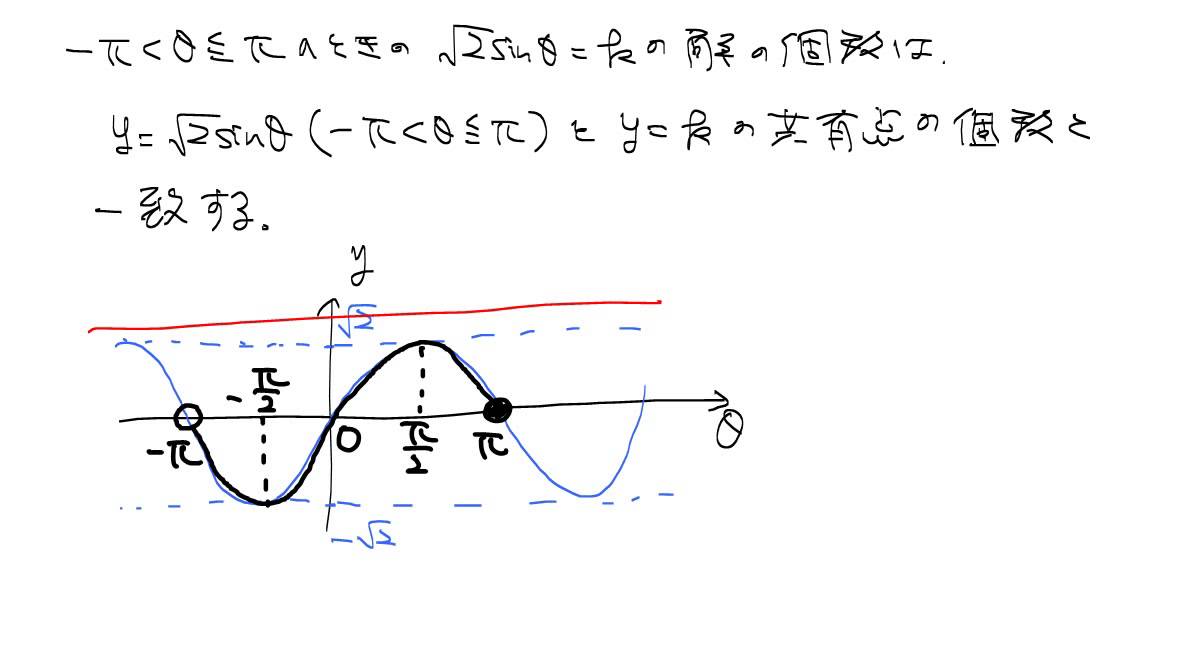 -π<θ≦πのときの √2sinθ=kの解の個数は.
y=√2sinθ(-π<θ≦π)と y=kの共有点の個数と
一致する.
y
√2
-π/2
-π
O
π/2
π
θ
-√2